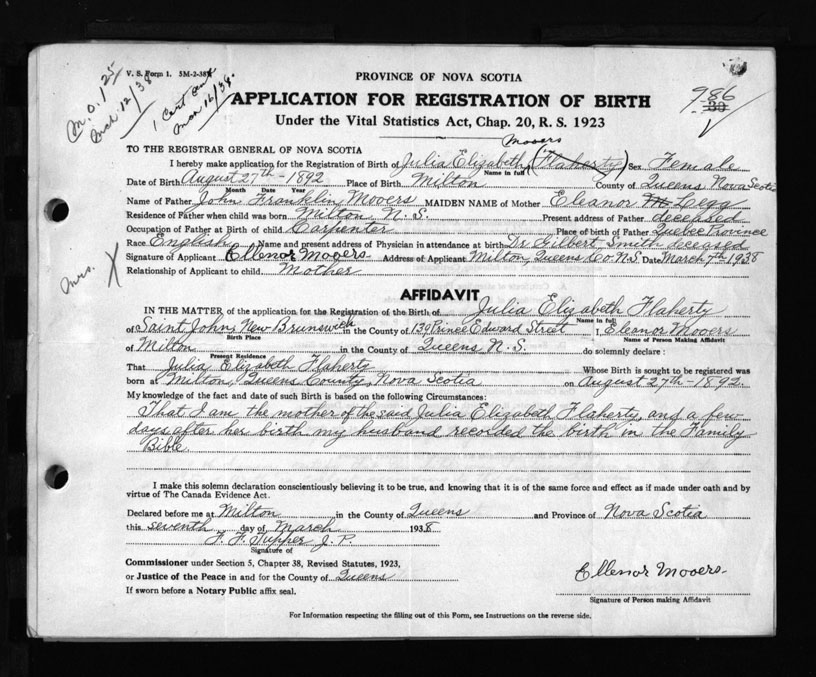 V. S. Form 1. 5M-2-38
M.O. 1 25
Mch 12/38
1 Cert ent
Mar 16/38.
PROVINCE OF NOVA SCOTIA
APPLICATION FOR REGISTRATION OF BIRTH
Under the Vital Statistics Act, Chap. 20, R. S. 1923
986
30
TO THE REGISTRAR GENERAL OF NOVA SCOTIA
Mooers
I hereby make application for the Registration of Birth of Julia Elizabeth (Flaherty) Sex Female
Name in full
Date of Birth August 27th - 1892 Place of Birth Milton County of Queens Nova Scotia
Month Date Year
Name of Father John Franklin Mooers MAIDEN NAME of Mother Eleanor M Legg
Residence of Father when child was born Milton N.S. Present address of Father deceased
Occupation of Father at Birth of Child Carpenter Place of birth of Father Quebec Province
Race English Name and present address of Physician in attendance at birth Dr Gilbert Smith deceased
Mrs. X Signature of Applicant Ellenor Mooers Address of Applicant Milton, Queens Co N.S. Date March 7th 1938
Relationship of Applicant to child Mother
AFFIDAVIT
IN THE MATTER of the application for the Registration of the Birth of Julia Elizabeth Flaherty
Name in full
of Saint John, New Brunswick in the County of 139 Prince Edward Street I, Eleanor Mooers
Birth Place Name of Person Making Affidavit
of Milton in the County of Queens N.S. do solemnly declare :
Present Residence
That Julia Elizabeth Flaherty Whose Birth is sought to be registered was
born at Milton, Queens County, Nova Scotia on August 27th - 1892
My knowledge of the fact and date of such Birth is based on the following Circumstances:
That I am the mother of the said Julia Elizabeth Flaherty, and a few
days after her birth my husband recorded the birth in the Family
Bible
I make this solemn declaration conscientiously believing it to be true, and knowing that it is of the same force and effect as if made under oath and by
virtue of The Canada Evidence Act.
Declared before me at Milton in the County of Queens and Province of Nova Scotia
this seventh day of March 1938
F. F. Tupper J. P.
Signature of
Commissioner under Section 5, Chapter 38, Revised Statutes, 1923,
or Justice of the Peace in and for the County of Queens
If sworn before a Notary Public affix seal.
Ellenor Mooers
Signature of Person making Affidavit
For Information respecting the filling out of this Form, see Instructions on the reverse side.